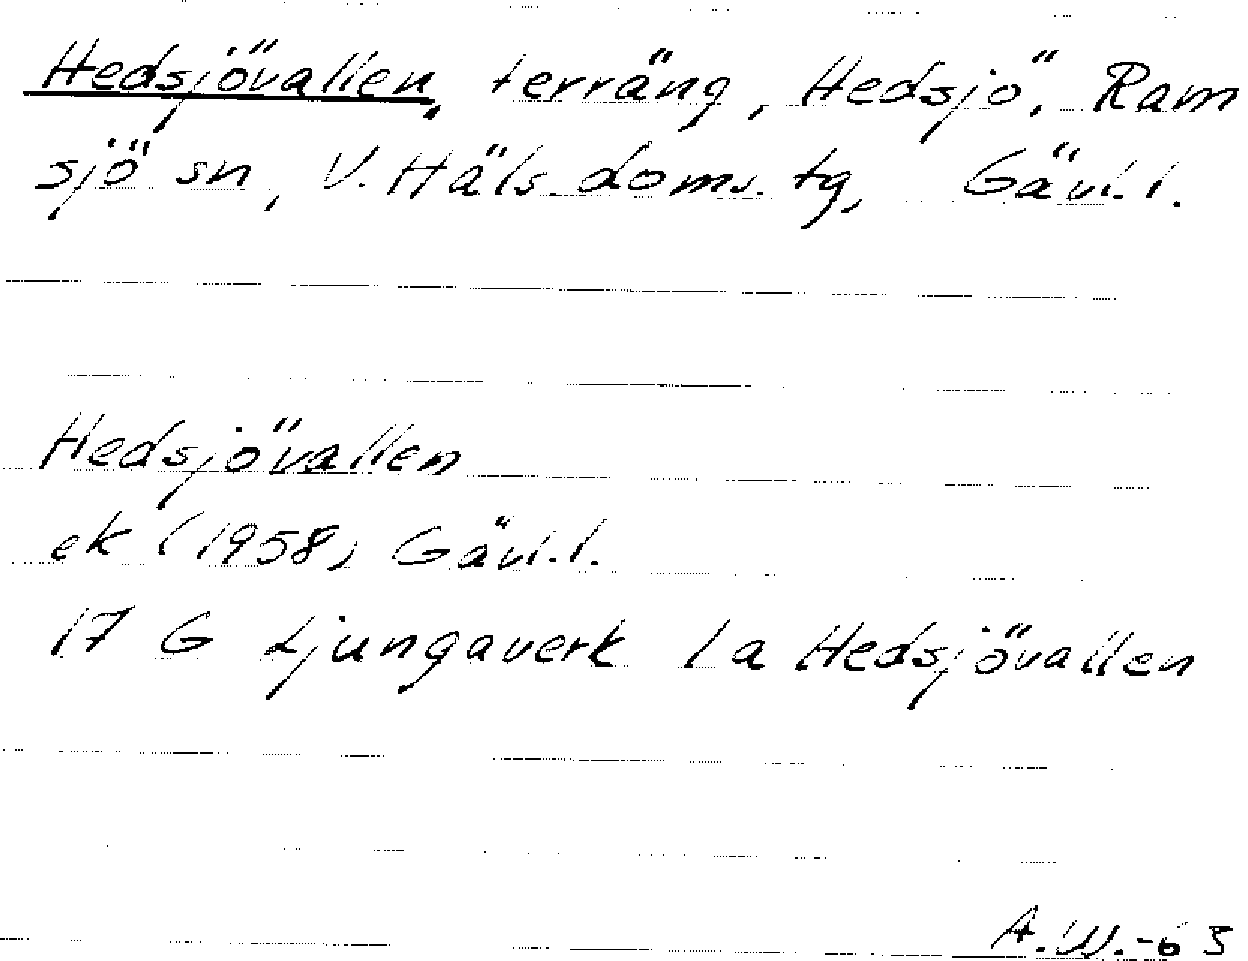 Hedsjövallen, terräng, Hedsjö, Ram
sjö sn, V. Häls. doms. tg, Gävl. l.
Hedsjövallen
ek (1958) Gävl. l.
17 G Ljungaverk 1a Hedsjövallen
A.W.-63